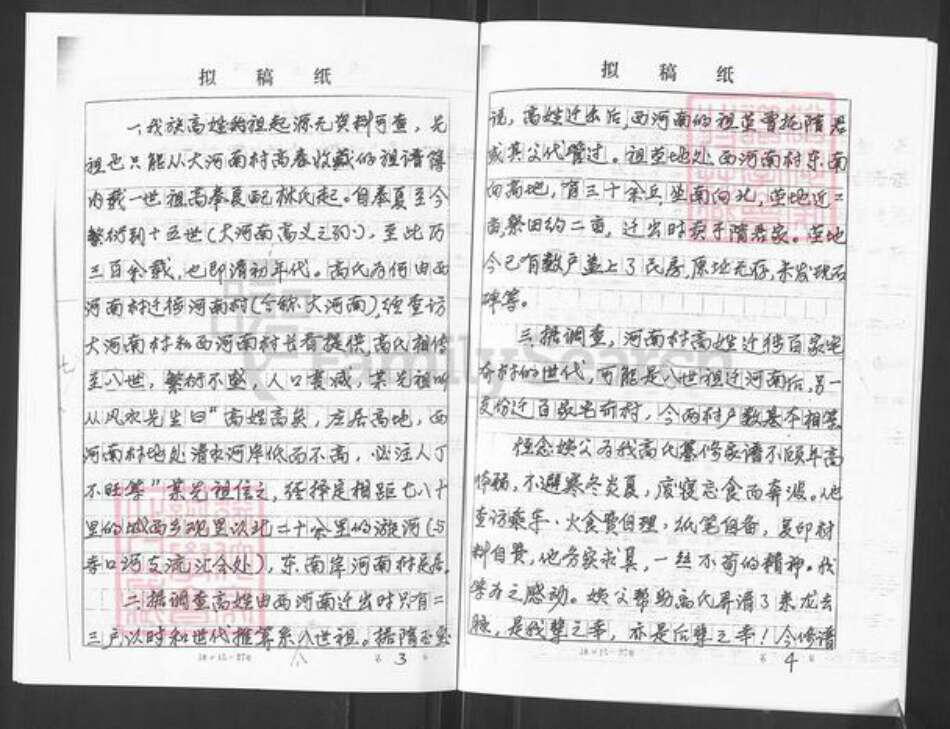 拟稿纸
一、我族高姓始祖起源无资料可查，先
祖也只能从大河南村高春收藏的祖谱簿
内载一世祖高奉夏配林氏起。自奉夏至今
繁衍到十五世（大河南高义之孙），至此历
三百余载，也即清初年代。高氏为何由西
河南村迁徙河南村（今称大河南），经查访
大河南村和西河南村长者提供，高氏相传
至八世，繁衍不盛，人口衰减，某先祖听
从风水先生曰"高姓高矣，应居高地，西
河南村地处清水河岸低而不高，必注人丁
不旺等"某先祖信之，经择定相距七八十
里的城西乡观里以北二十余里的漩河（与
河支流汇合处），东南岸河南村定居。
二、据调查高姓由西河南迁出时只有二
三户以时和世代推算系八世祖。据隋
3
拟稿纸
说，高姓迁出后，西河南的祖茔曾托隋君
或其父代管过。祖茔地处西河南村东南
向高地，有三十余丘坐南向北，茔地近二
亩，祭田约二亩，迁出时卖于隋君家。茔地
今已有数户盖上了民房，原址无存，未发现石
碑等。
三、据调查，河南村高姓迁徙百家宅
夼村的世代，可能是八世祖迁河南后，另一
支份迁百家宅夼村，今两村户数基本相等。
但念姨父为我高氏纂修家谱不顾年高
体弱，不避寒冬炎夏，废寝忘食而奔波。他
查访乘车、火食费自理，纸笔自备，复印材
料自费，他务实求真，一丝不苟的精神。我
等为之感动。姨父帮助高氏弄清了来龙去
脉，是我辈之幸，亦是后辈之幸！今修谱
4
FamilySearch